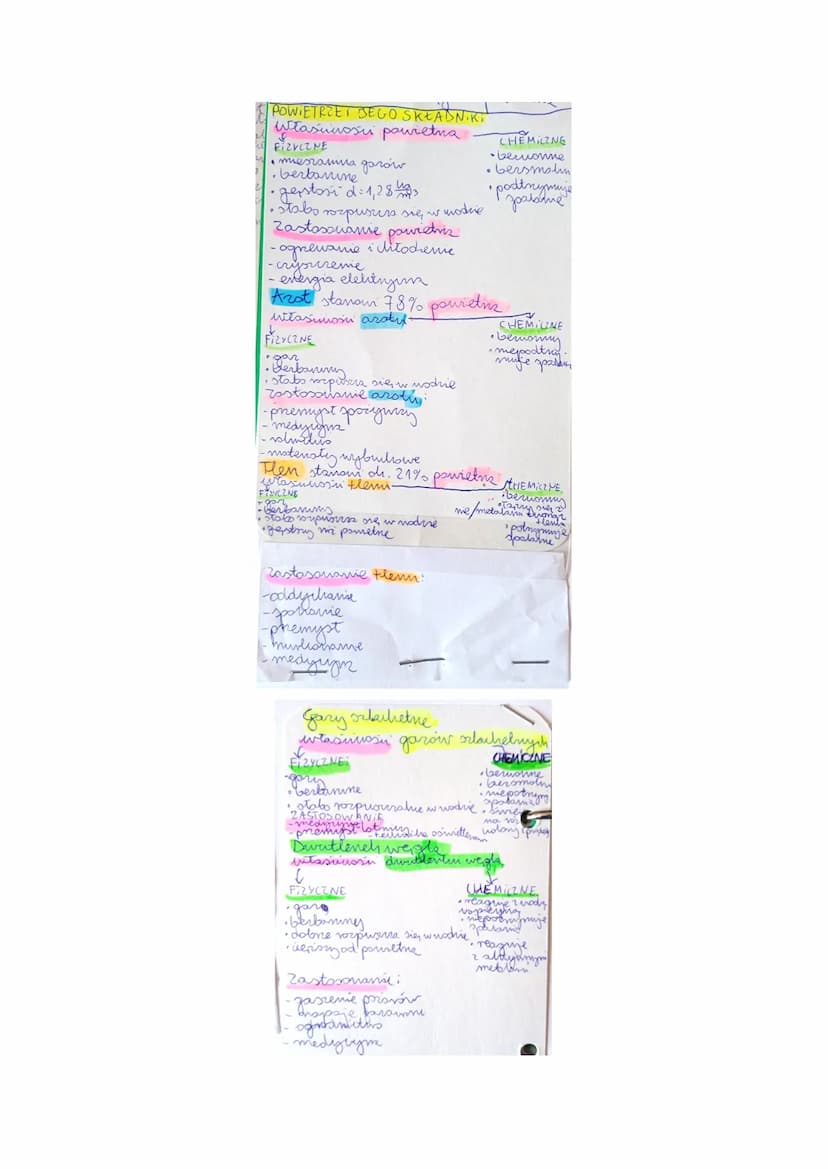 POWIETRZE I JEGO SKŁADNIKI
Właściwości powietrza
FIZYCZNE
• mieszanina gazów
• bezbarwne
• gęstość d=1,28 kg/m³
• słabo rozpuszcza się w wodzie
CHEMICZNE
• bezwonne
• bezsmakowe
• podtrzymuje
spalanie
Zastosowanie powietrza
- ogrzewanie i chłodzenie
- czyszczenie
- energia elektryczna
Azot stanowi 78% powietrza
właściwości azotu
FIZYCZNE
• gaz
• bezbarwny
• słabo rozpuszcza się w wodzie
CHEMICZNE
• bezwonny
• niepodtrzy-
muje spalania
Zastosowanie azotu:
- przemysł spożywczy
- medycyna
- rolnictwo
- materiały wybuchowe
Tlen stanowi ok. 21% powietrza
właściwości tlenu
FIZYCZNE
• gaz
• bezbarwny
• słabo rozpuszcza się w wodzie
• gęstszy niż powietrze
CHEMICZNE
• bezwonny
• łączy się z
nie/metalami tworząc
tlenki
• podtrzymuje
spalanie
Zastosowanie tlenu:
- oddychanie
- spalanie
- przemysł
- nurkowanie
- medycyna
Gazy szlachetne
właściwości gazów szlachetnych
FIZYCZNE:
• gazy
• bezbarwne
• słabo rozpuszczalne w wodzie
CHEMICZNE
• bezwonne
• bezsmakowe
spalania
ZASTOSOWANIE
- medycyna
- przemysł lotniczy
- technika oświetleniowa
Dwutlenek węgla
właściwości dwutlenku węgla
FIZYCZNE
• gaz
• bezbarwny
• dobrze rozpuszcza się w wodzie
• cięższy od powietrza
CHEMICZNE
• reaguje z wodą
• niepodtrzymuje
spalania
• reaguje
z aktywnymi
metalami
Zastosowanie:
- gaszenie pożarów
- napoje gazowane
- ogrodnictwo
- medycyna